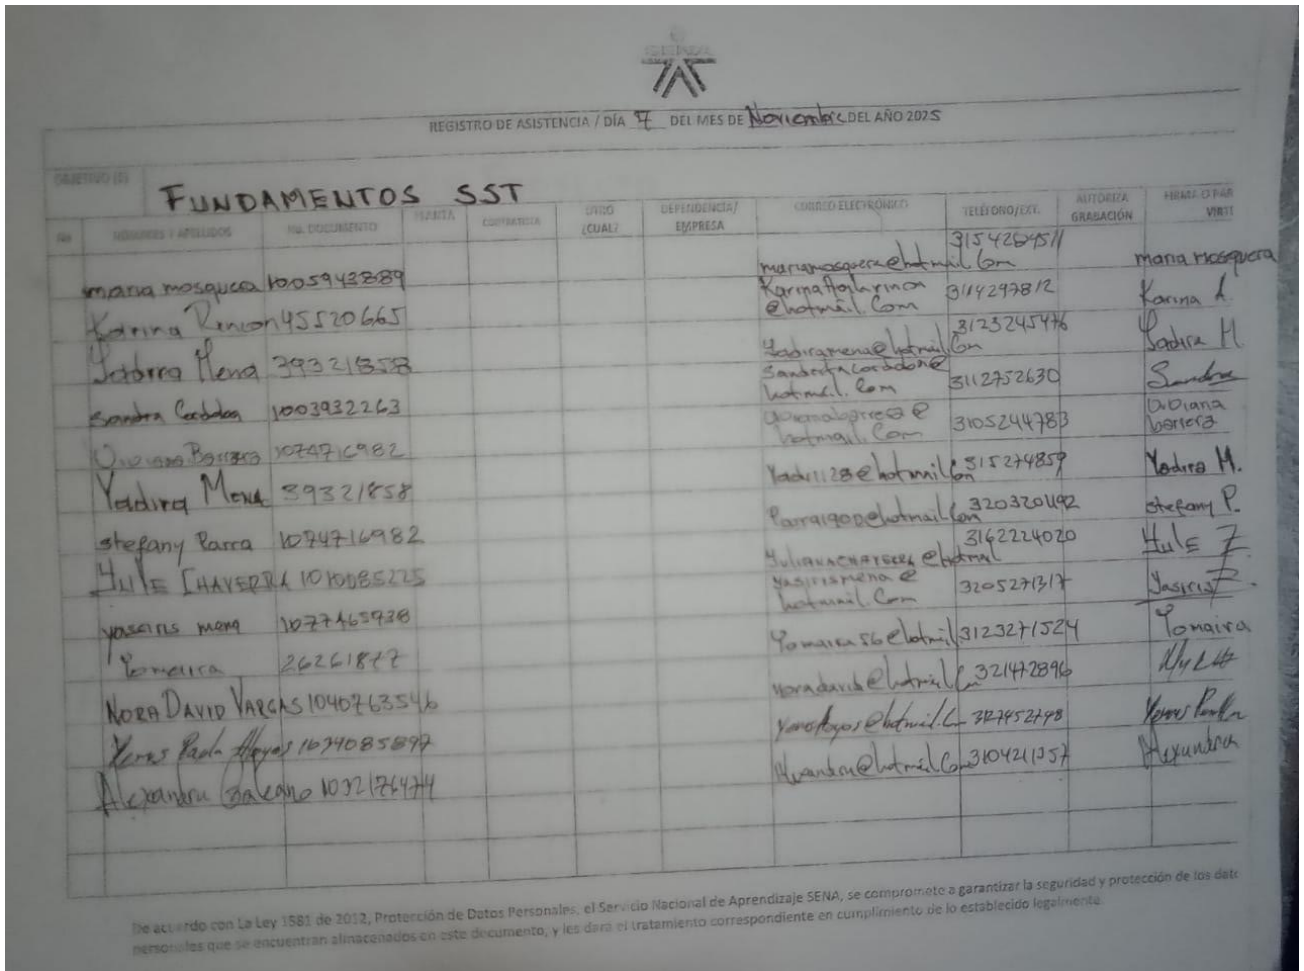 REGISTRO DE ASISTENCIA / DÍA 7 DEL MES DE Noviembre DEL AÑO 2025
OBJETIVO (S) FUNDAMENTOS SST
No NOMBRES Y APELLIDOS No. DOCUMENTO PLANTA CONTRATISTA OTRO ¿CUAL? DEPENDENCIA/ EMPRESA CORREO ELECTRÓNICO TELÉFONO/EXT. AUTORIZA GRABACIÓN FIRMA O PAR VIRTU
maria mosquera 1005943889 mariamosquera@hotmail.Com 3154264511 maria mosquera
Karina Rincon 45520665 @hotmail.Com 3114297812 Karina A.
Mena 39321858 Yadiramena@hotmail.Com 3123245476 Yadira M
Sandra Cordoba 1003932263 hotmail.Com 3112752630 Sandra
Barrera 1074716982 hotmail.Com 3105244783 Diana barrera
Yadira Mena 39321858 @hotmail.Com 315274859 Yadira M.
Stefany Parra 1074716982 Parra1900@hotmail.Com 320320492 stefany P.
YULE CHAVERRA 1010085225 @hotmal 3162224020 YULE
mena 1077465938 yasirismena@ hotmail.Com 3205271317 Yasiris
Yomaira 26261877 Yomaira56@hotmil 3123271524 Yomaira
NORA DAVID VARGAS 1040763546 noradavid@hotmail.C 321472896
Paola Hoyos 1034085897 @hotmail.C 3127452798
Alexandra Galeano 1032176474 @hotmail.Com 3104211357 Alexandra
De acuerdo con La Ley 1581 de 2012, Protección de Datos Personales, el Servicio Nacional de Aprendizaje SENA, se compromete a garantizar la seguridad y protección de los dato
personales que se encuentran almacenados en este documento, y les dará el tratamiento correspondiente en cumplimiento de lo establecido legalmente.